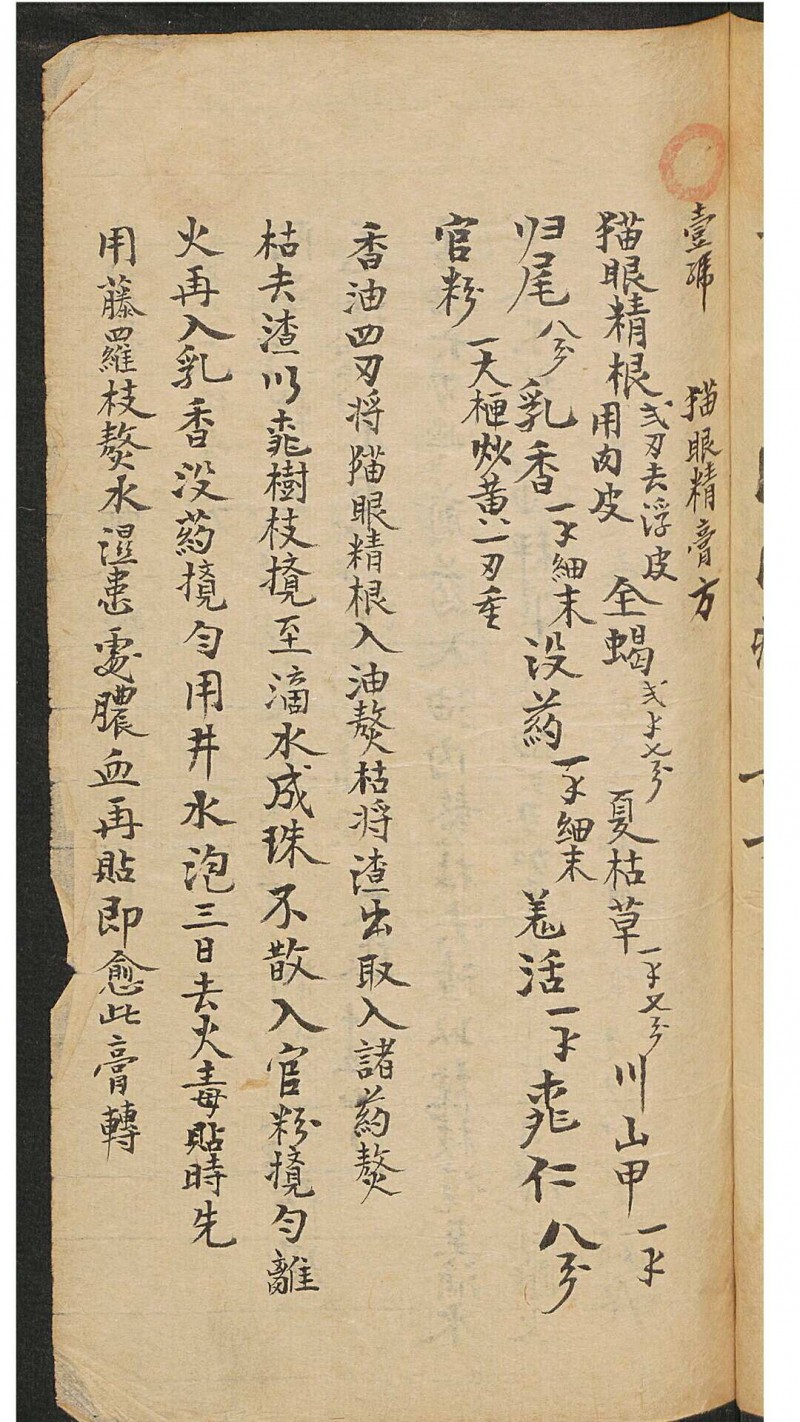 壹號 猫眼精膏方
猫眼精根 弍刃去浮皮用肉皮 全蝎 弍才七分 夏枯草 一才七分 川山甲 一才
归尾 八分 乳香 一才細末 没药 一才細末 羗活 一才 桃仁 八分
官粉 一大 炒黄 二刃重
香油四刃将猫眼精根入油熬枯将渣出取入諸药熬
枯去渣以桃樹枝攪至滴水成珠不散入官粉攪匀離
火再入乳香没药攪匀用井水泡三日去火毒貼時先
用藤羅枝熬水濕患處膿血再貼即愈此膏轉